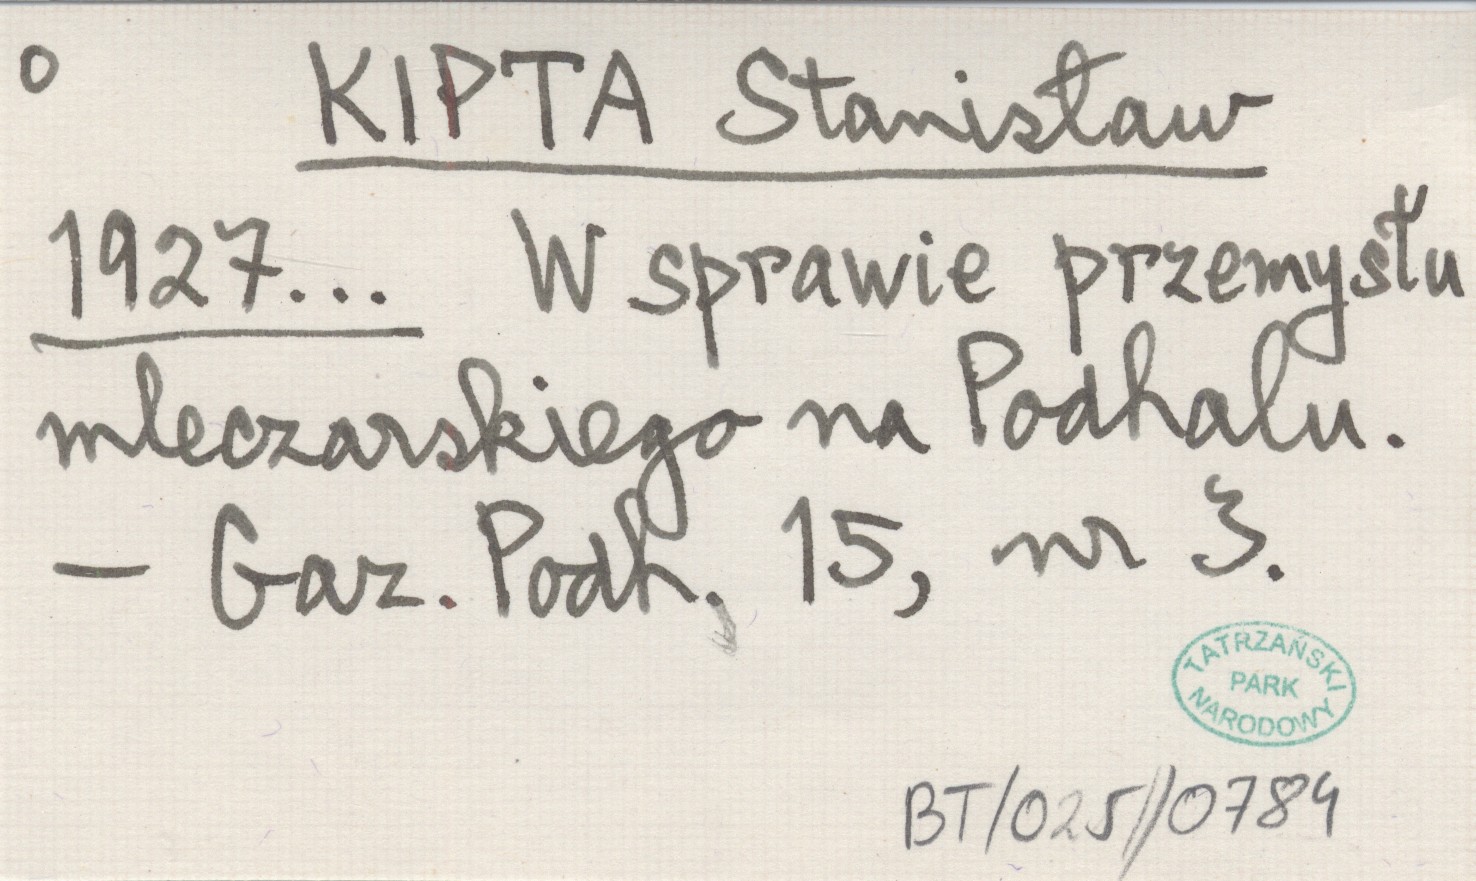 o KIPTA Stanisław
1927... W sprawie przemysłu
mleczarskiego na Podhalu.
— Gaz. Podh. 15, nr 3.
TATRZAŃSKI
PARK
NARODOWY
BT/025//0784